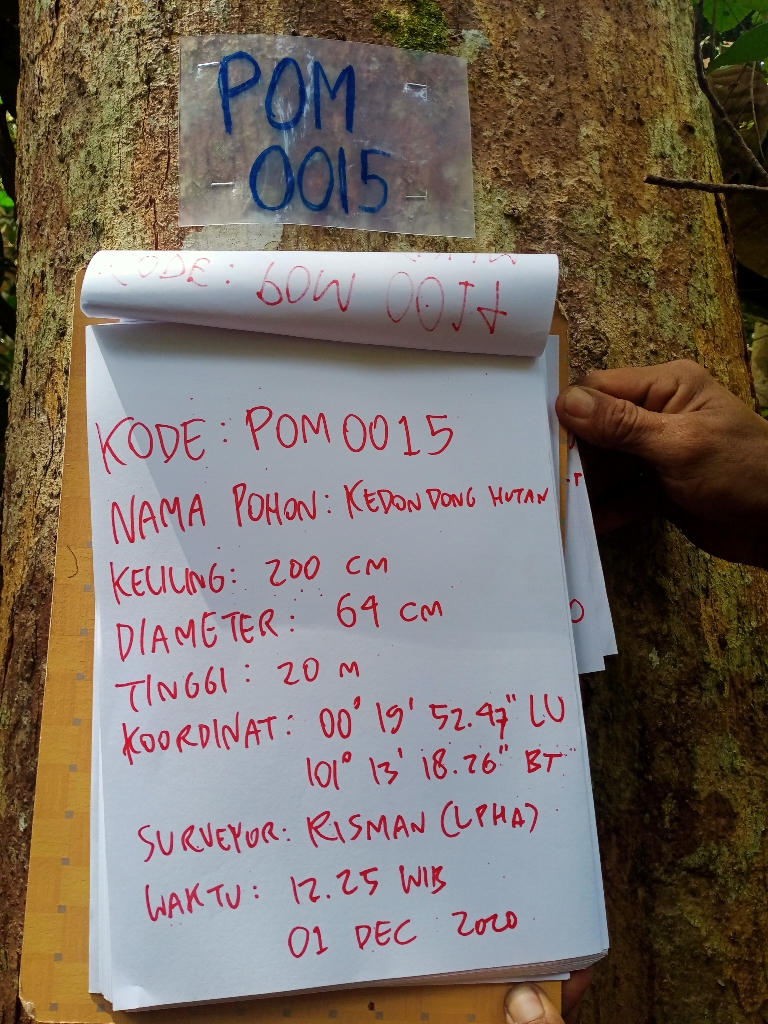 POM
0015
KODE: POM 0014
KODE: POM 0015
NAMA POHON: KEDONDONG HUTAN
KELILING: 200 CM
DIAMETER: 64 CM
TINGGI: 20 M
KOORDINAT: 00° 19' 52.47" LU
101° 13' 18.26" BT
SURVEYOR: RISMAN (LPHA)
WAKTU: 12.25 WIB
01 DEC 2020